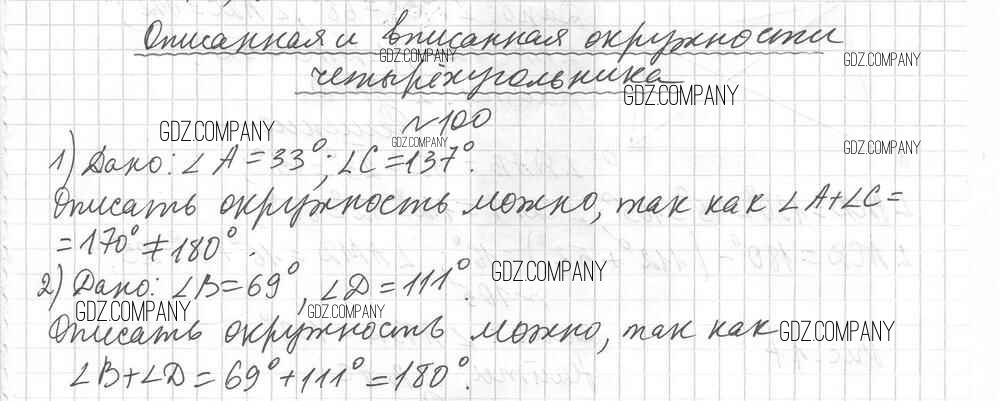 Описанная и вписанная окружности
GDZ.COMPANY
GDZ.COMPANY
четырёхугольника
GDZ.COMPANY
№100
GDZ.COMPANY
GDZ.COMPANY
GDZ.COMPANY
1) Дано: ∠A = 33°; ∠C = 137°.
Описать окружность можно, так как ∠A+∠C =
= 170° ≠ 180°.
GDZ.COMPANY
2) Дано: ∠B = 69°, ∠D = 111°.
GDZ.COMPANY
GDZ.COMPANY
Описать окружность можно, так как
GDZ.COMPANY
∠B+∠D = 69°+111° = 180°.